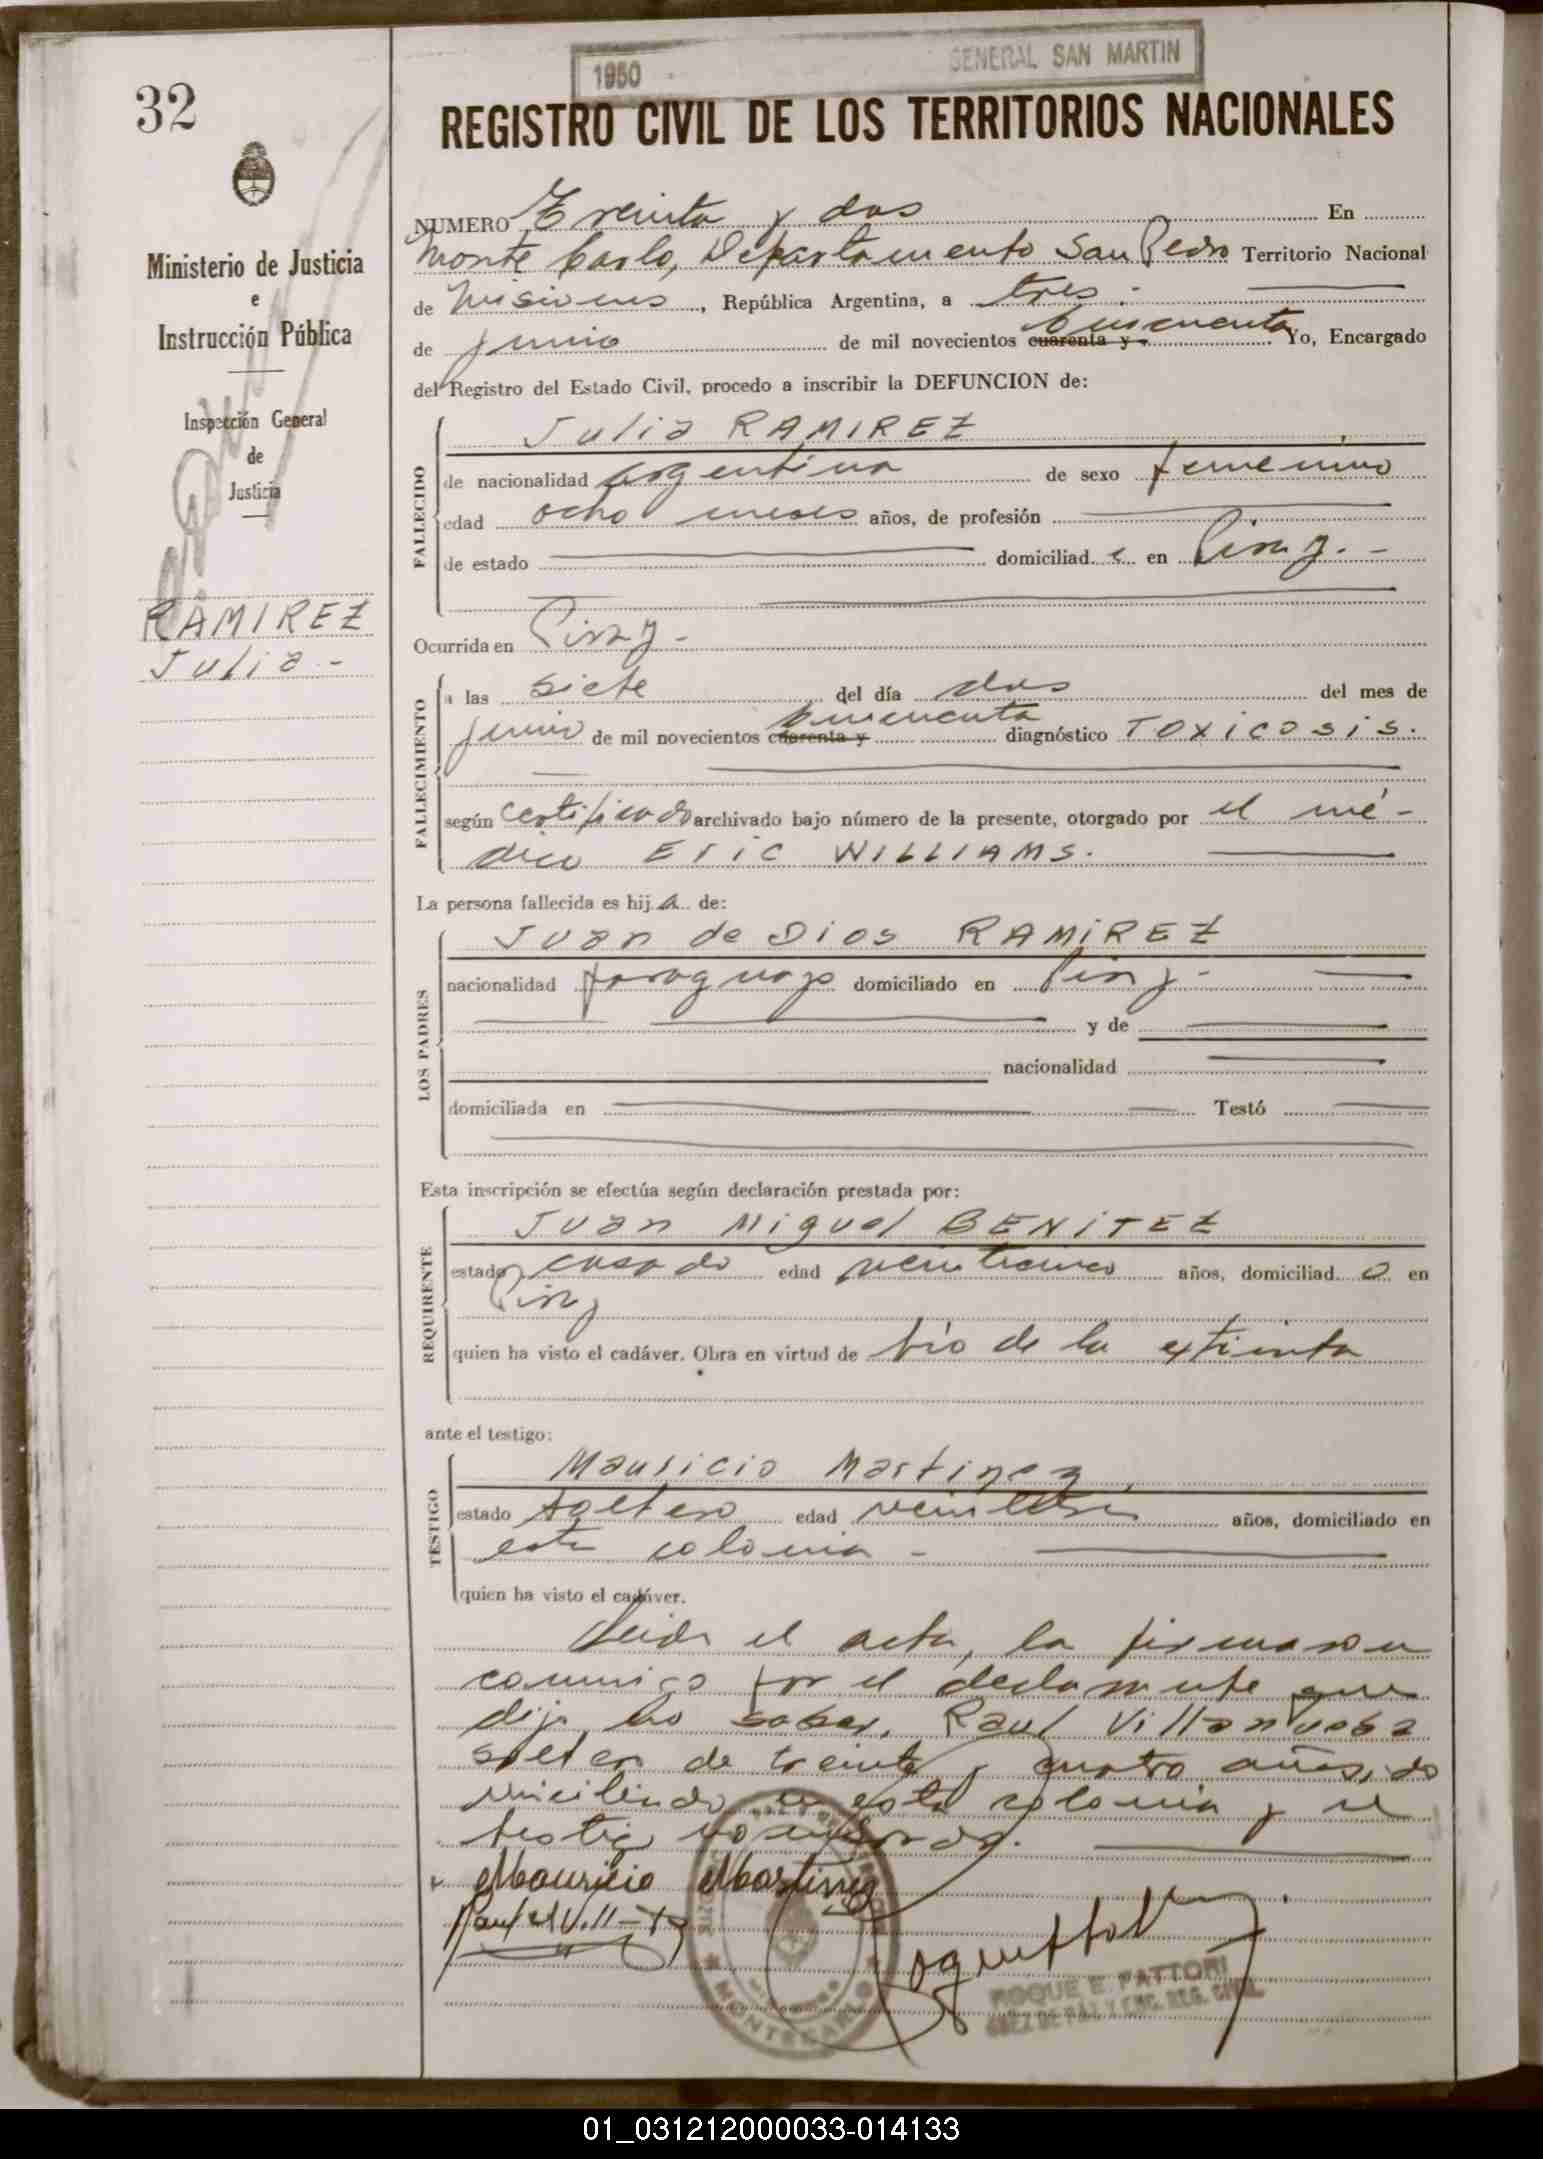 1950 GENERAL SAN MARTIN
32
REGISTRO CIVIL DE LOS TERRITORIOS NACIONALES
Ministerio de Justicia
e
Instrucción Pública
Inspección General
de
Justicia
RAMIREZ
Julia -
NUMERO Treinta y dos En
Monte Carlo, Departamento San Pedro Territorio Nacional
de Misiones, República Argentina, a tres.-
de junio de mil novecientos cuarenta y cincuenta Yo, Encargado
del Registro del Estado Civil, procedo a inscribir la DEFUNCION de:
FALLECIDO
Julia RAMIREZ
de nacionalidad argentina de sexo femenino
edad ocho meses años, de profesión
de estado domiciliad a en Piray.-
Ocurrida en Piray-
FALLECIMIENTO
a las siete del día dos del mes de
junio de mil novecientos cuarenta y cincuenta diagnóstico TOXICOSIS.
según certificado archivado bajo número de la presente, otorgado por el mé-
dico Eric WILLIAMS.
La persona fallecida es hija de:
LOS PADRES
Juan de Dios RAMIREZ
nacionalidad paraguayo domiciliado en Piray-
y de
nacionalidad
domiciliada en Testó
Esta inscripción se efectúa según declaración prestada por:
REQUIRENTE
Juan Miguel BENITEZ
estado casado edad veinticinco años, domiciliad o en
Piray
quien ha visto el cadáver. Obra en virtud de tío de la extinta
ante el testigo:
TESTIGO
Mauricio Martinez
estado soltero edad años, domiciliado en
esta colonia -
quien ha visto el cadáver.
Leida el acta, la firmaron
conmigo por el declarante que
dijo no saber, Raul Villanueba
soltero de treinta y cuatro años, do
miciliado en esta colonia y el
testigo nombrado.
Mauricio Martinez
MONTECARLO
ROQUE E. FATTORI
JUEZ DE PAZ Y ENC. REG. CIVIL
01_031212000033-014133